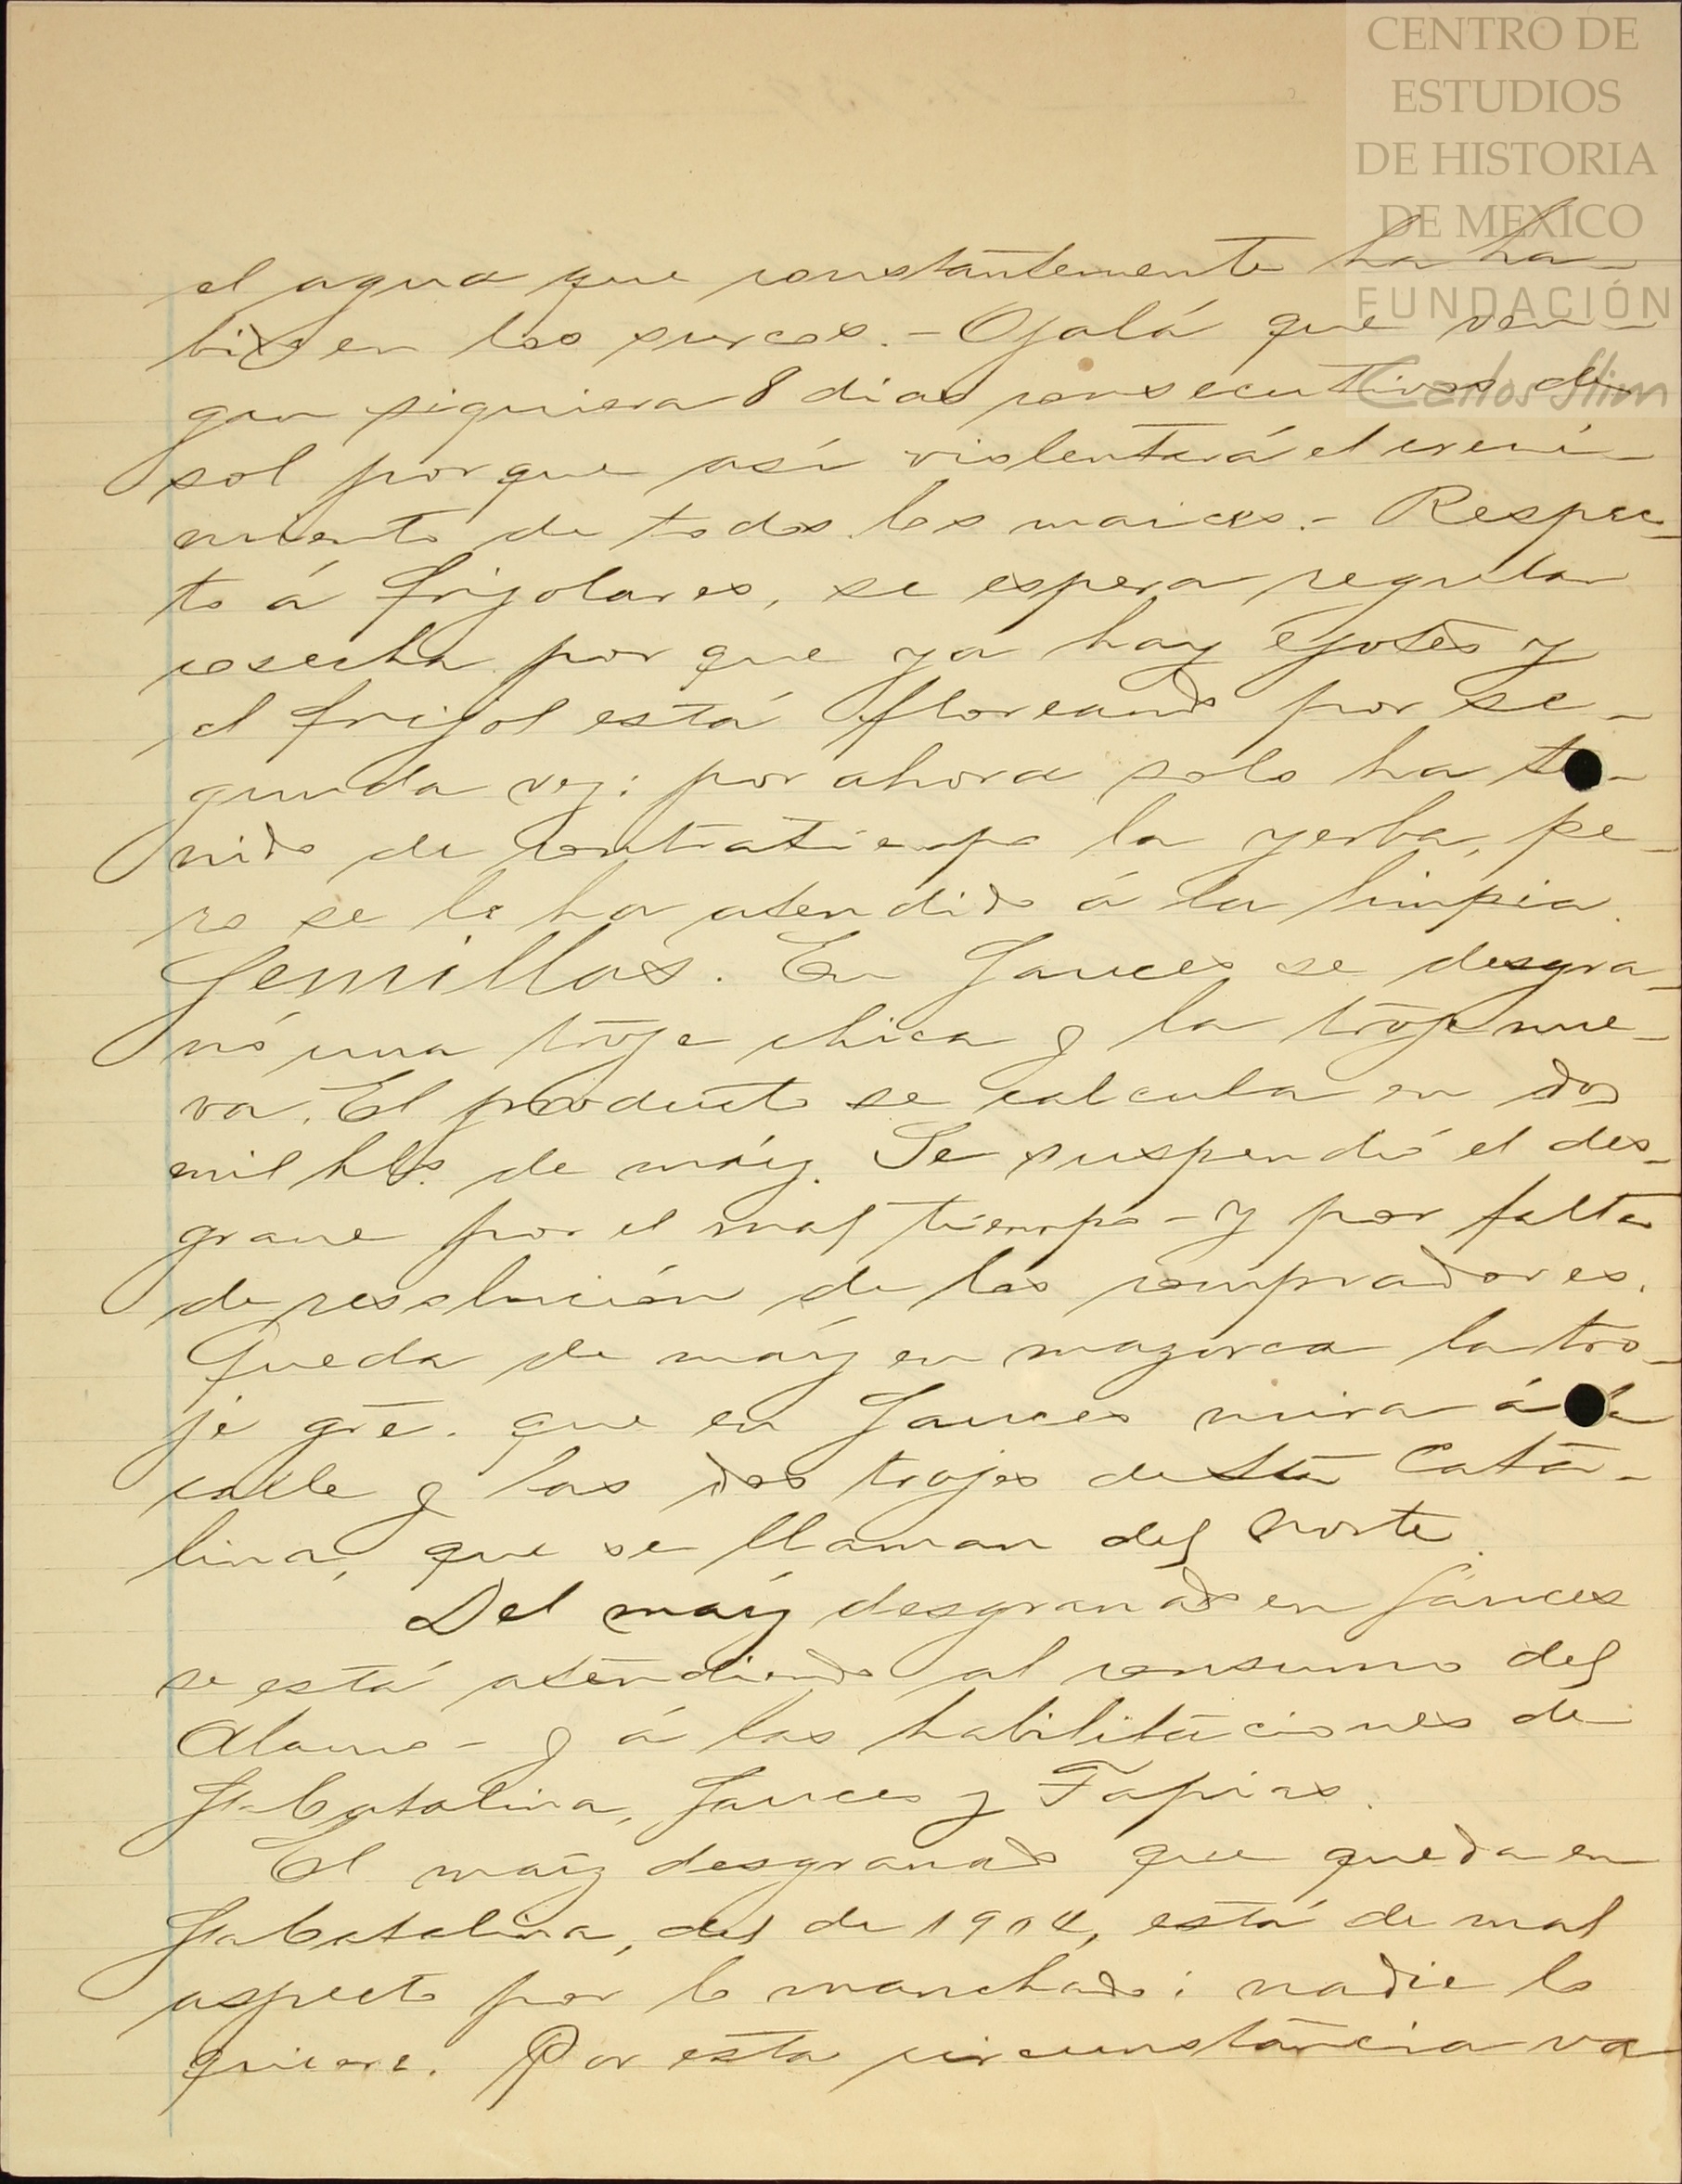 CENTRO DE
ESTUDIOS
DE HISTORIA
DE MEXICO
FUNDACIÓN
Carlos Slim
el agua que constantemente ha ha-
bido en los surcos. - Ojalá que ven-
gan siquiera 8 dias consecutivos de
sol por que así violentará el creci-
miento de todos los maices. - Respec-
to á frijolares, se espera regular
cosecha por que ya hay ejotes y
el frijol está floreando por se-
gunda vez: por ahora solo ha te-
nido de contratiempo la yerba, pe-
ro se le ha atendido á la limpia.
Semillas. En Sauces se desgra-
nó una troje chica y la troje nue-
va. El producto se calcula en dos
mil hls. de maíz. Se suspendió el des-
grane por el mal tiempo - y por falta
de resolución de los compradores.
Queda de maíz en mazorca la tro-
je gre. que en Sauces mira á la
calle y las dos trojes de Sta Cata-
lina, que se llaman del Norte.
Del maíz desgranado en Sauces
se está atendiendo al consumo del
Alamo - y á las habilitaciones de
Sta Catalina, Sauces y Tapias.
El maíz desgranado que queda en
Sta Catalina, del de 1904, está de mal
aspecto por lo manchado: nadie lo
quiere. Por esta circunstancia va